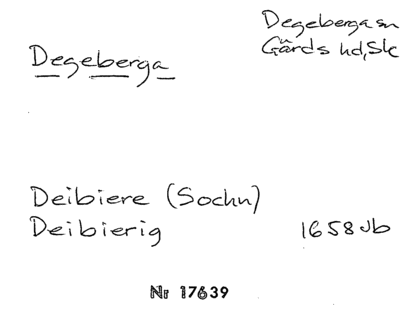 Degeberga
Degeberga sn
Gärds hd, Sk
Deibiere (Sochn)
Deibierig 1658 Jb
Nr 17639